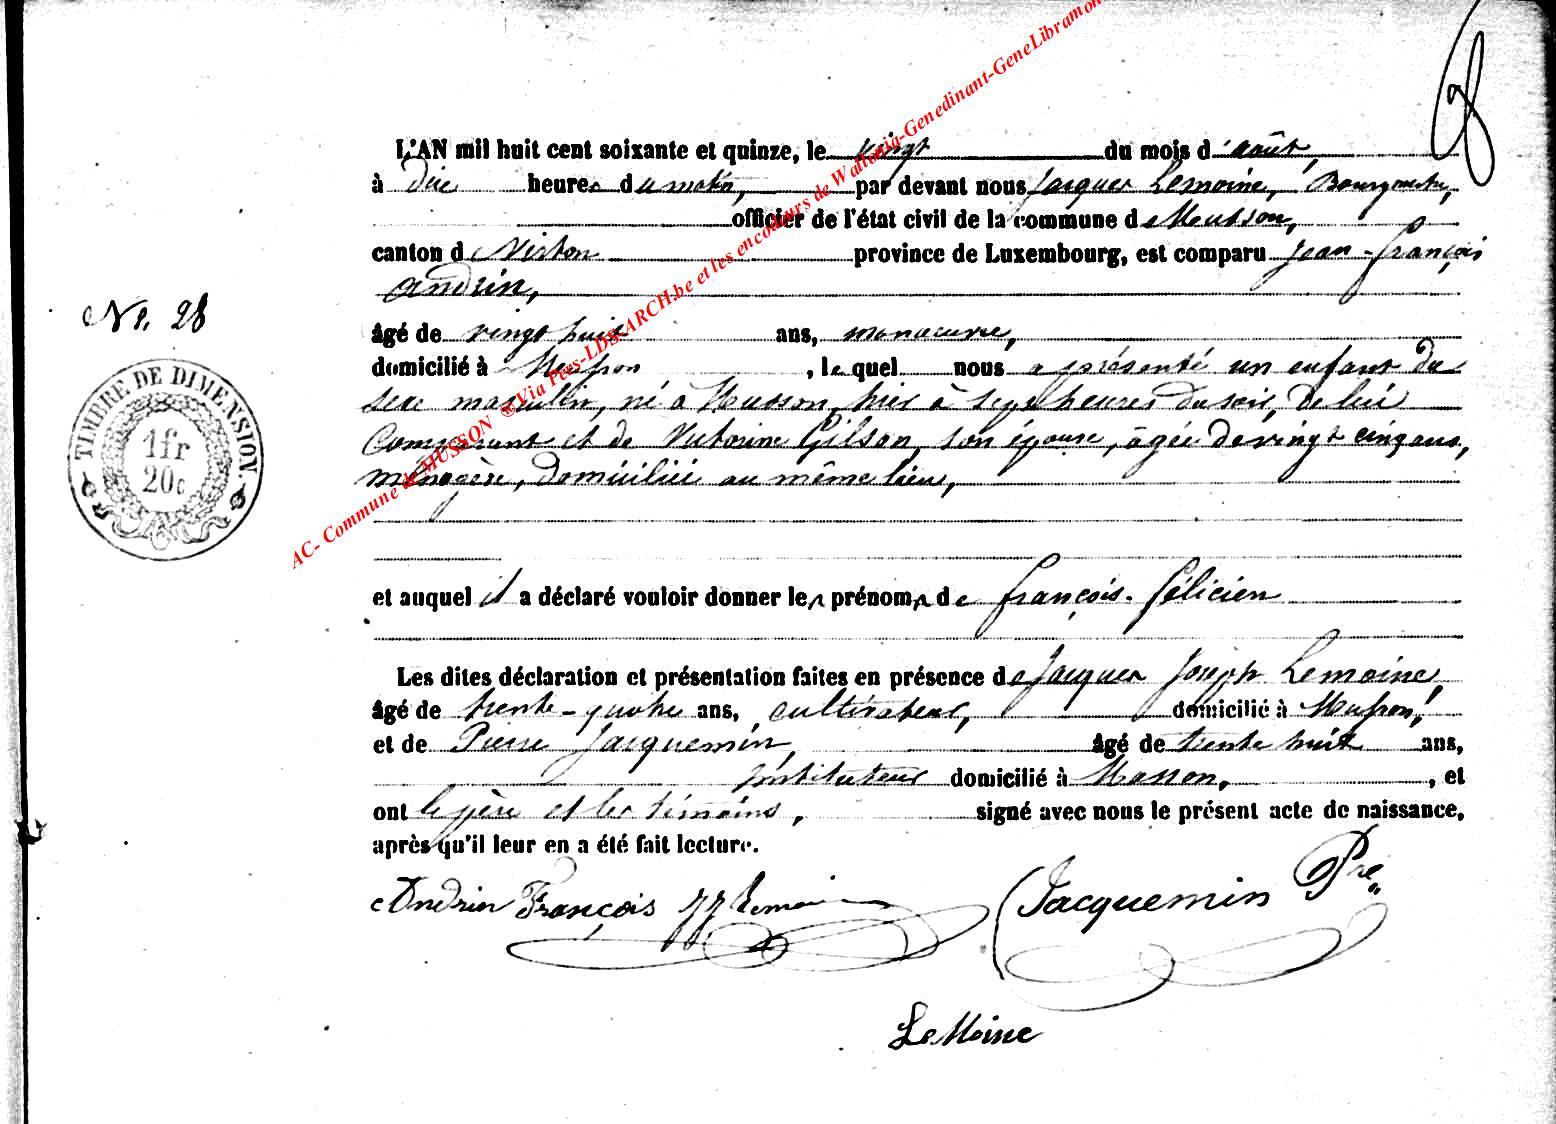 L'AN mil huit cent soixante et quinze, le vingt du mois d'août,
à dix heures du matin, par devant nous Jacques Lemoine, Bourgmestre,
officier de l'état civil de la commune de Musson,
canton de Virton province de Luxembourg, est comparu Jean-françois
andrin,
No. 28
âgé de vingt huit ans, manœuvre,
domicilié à Musson, lequel nous a présenté un enfant du
sexe masculin, né à Musson, hier à sept heures du soir, de lui
Comparant et de Victorine Gilson, son épouse, âgée de vingt cinq ans,
ménagère, domiciliée au même lieu,
TIMBRE DE DIMENSION.
1fr
20c
et auquel il a déclaré vouloir donner les prénoms de françois-félicien
Les dites déclaration et présentation faites en présence de Jacques Joseph Lemoine,
âgé de trente-quatre ans, cultivateur, domicilié à Musson,
et de Pierre Jacquemin, âgé de trente huit ans,
instituteur domicilié à Musson, , et
ont le père et les témoins, signé avec nous le présent acte de naissance,
après qu'il leur en a été fait lecture.
Andrin François JJ Lemoine Jacquemin Pre
LeMoine
AC- Commune de MUSSON ®Via Pers-LDS-ARCH.be et les encodeurs de Wallonia-Genedinant-GeneLibramon